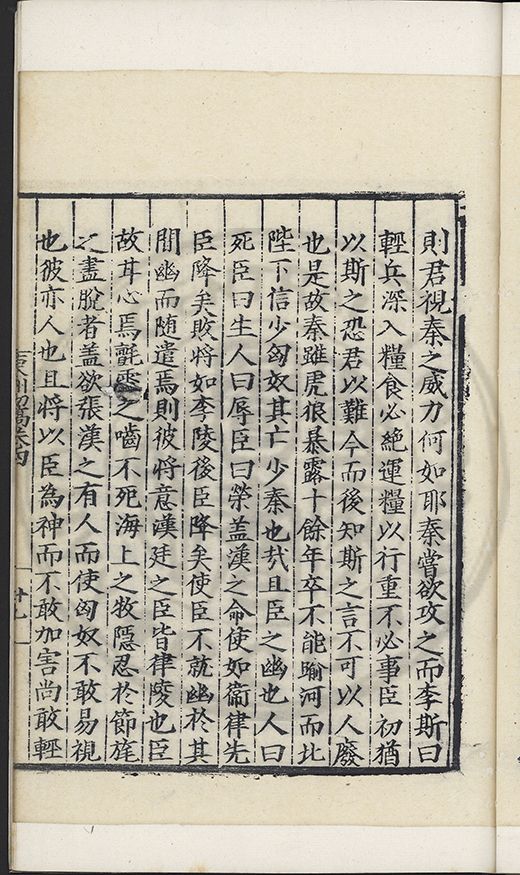 則君視秦之威力何如耶秦嘗欲攻之而李斯曰
輕兵深入糧食必絶運糧以行重不必事臣初猶
以斯之恐君以難今而後知斯之言不可以人廢
也是故秦雖虎狼暴露十餘年卒不能踰河而北
陛下信少匈奴其亡少秦也㢤且臣之幽也人曰
死臣曰生人曰辱臣曰榮盖漢之命使如衞律先
臣降矣敗將如李陵後臣降矣使臣不就幽於其
間幽而随遣焉則彼將意漢廷之臣皆律陵也臣
故甘心焉氈雪之嚙不死海上之牧隠忍於節旄
之盡脫者盖欲張漢之有人而使匈奴不敢易視
也彼亦人也且將以臣為神而不敢加害尚敢輕
卷四